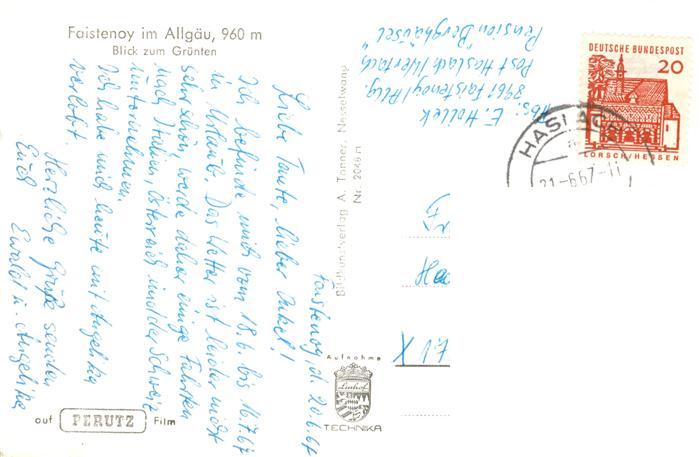 Faistenoy im Allgäu, 960 m
Blick zum Grünten
Faistenoy, d. 20.6.67
Liebe Tante, lieber Onkel!
Ich befinde mich vom 18.6. bis 16.7.67
in Urlaub. Das Wetter ist leider nicht
sehr schön, werde daher einige Fahrten
nach Italien, Österreich und der Schweiz
unternehmen.
Ich habe mich heute mit Angelika
verlobt.
Herzliche Grüße senden
Euch
Ewald u. Angelika
auf PERUTZ Film
Bildkunstverlag A. Tanner, Nesselwang
Nr. 2046 H
Aufnahme
Linhof
TECHNIKA
Abs: E.
8961 Faistenoy/Allg.
Post Haslach/Wertach
Pension "Berghäusel"
DEUTSCHE BUNDESPOST
20
LORSCH/HESSEN
HASLACH
21-6.67-11